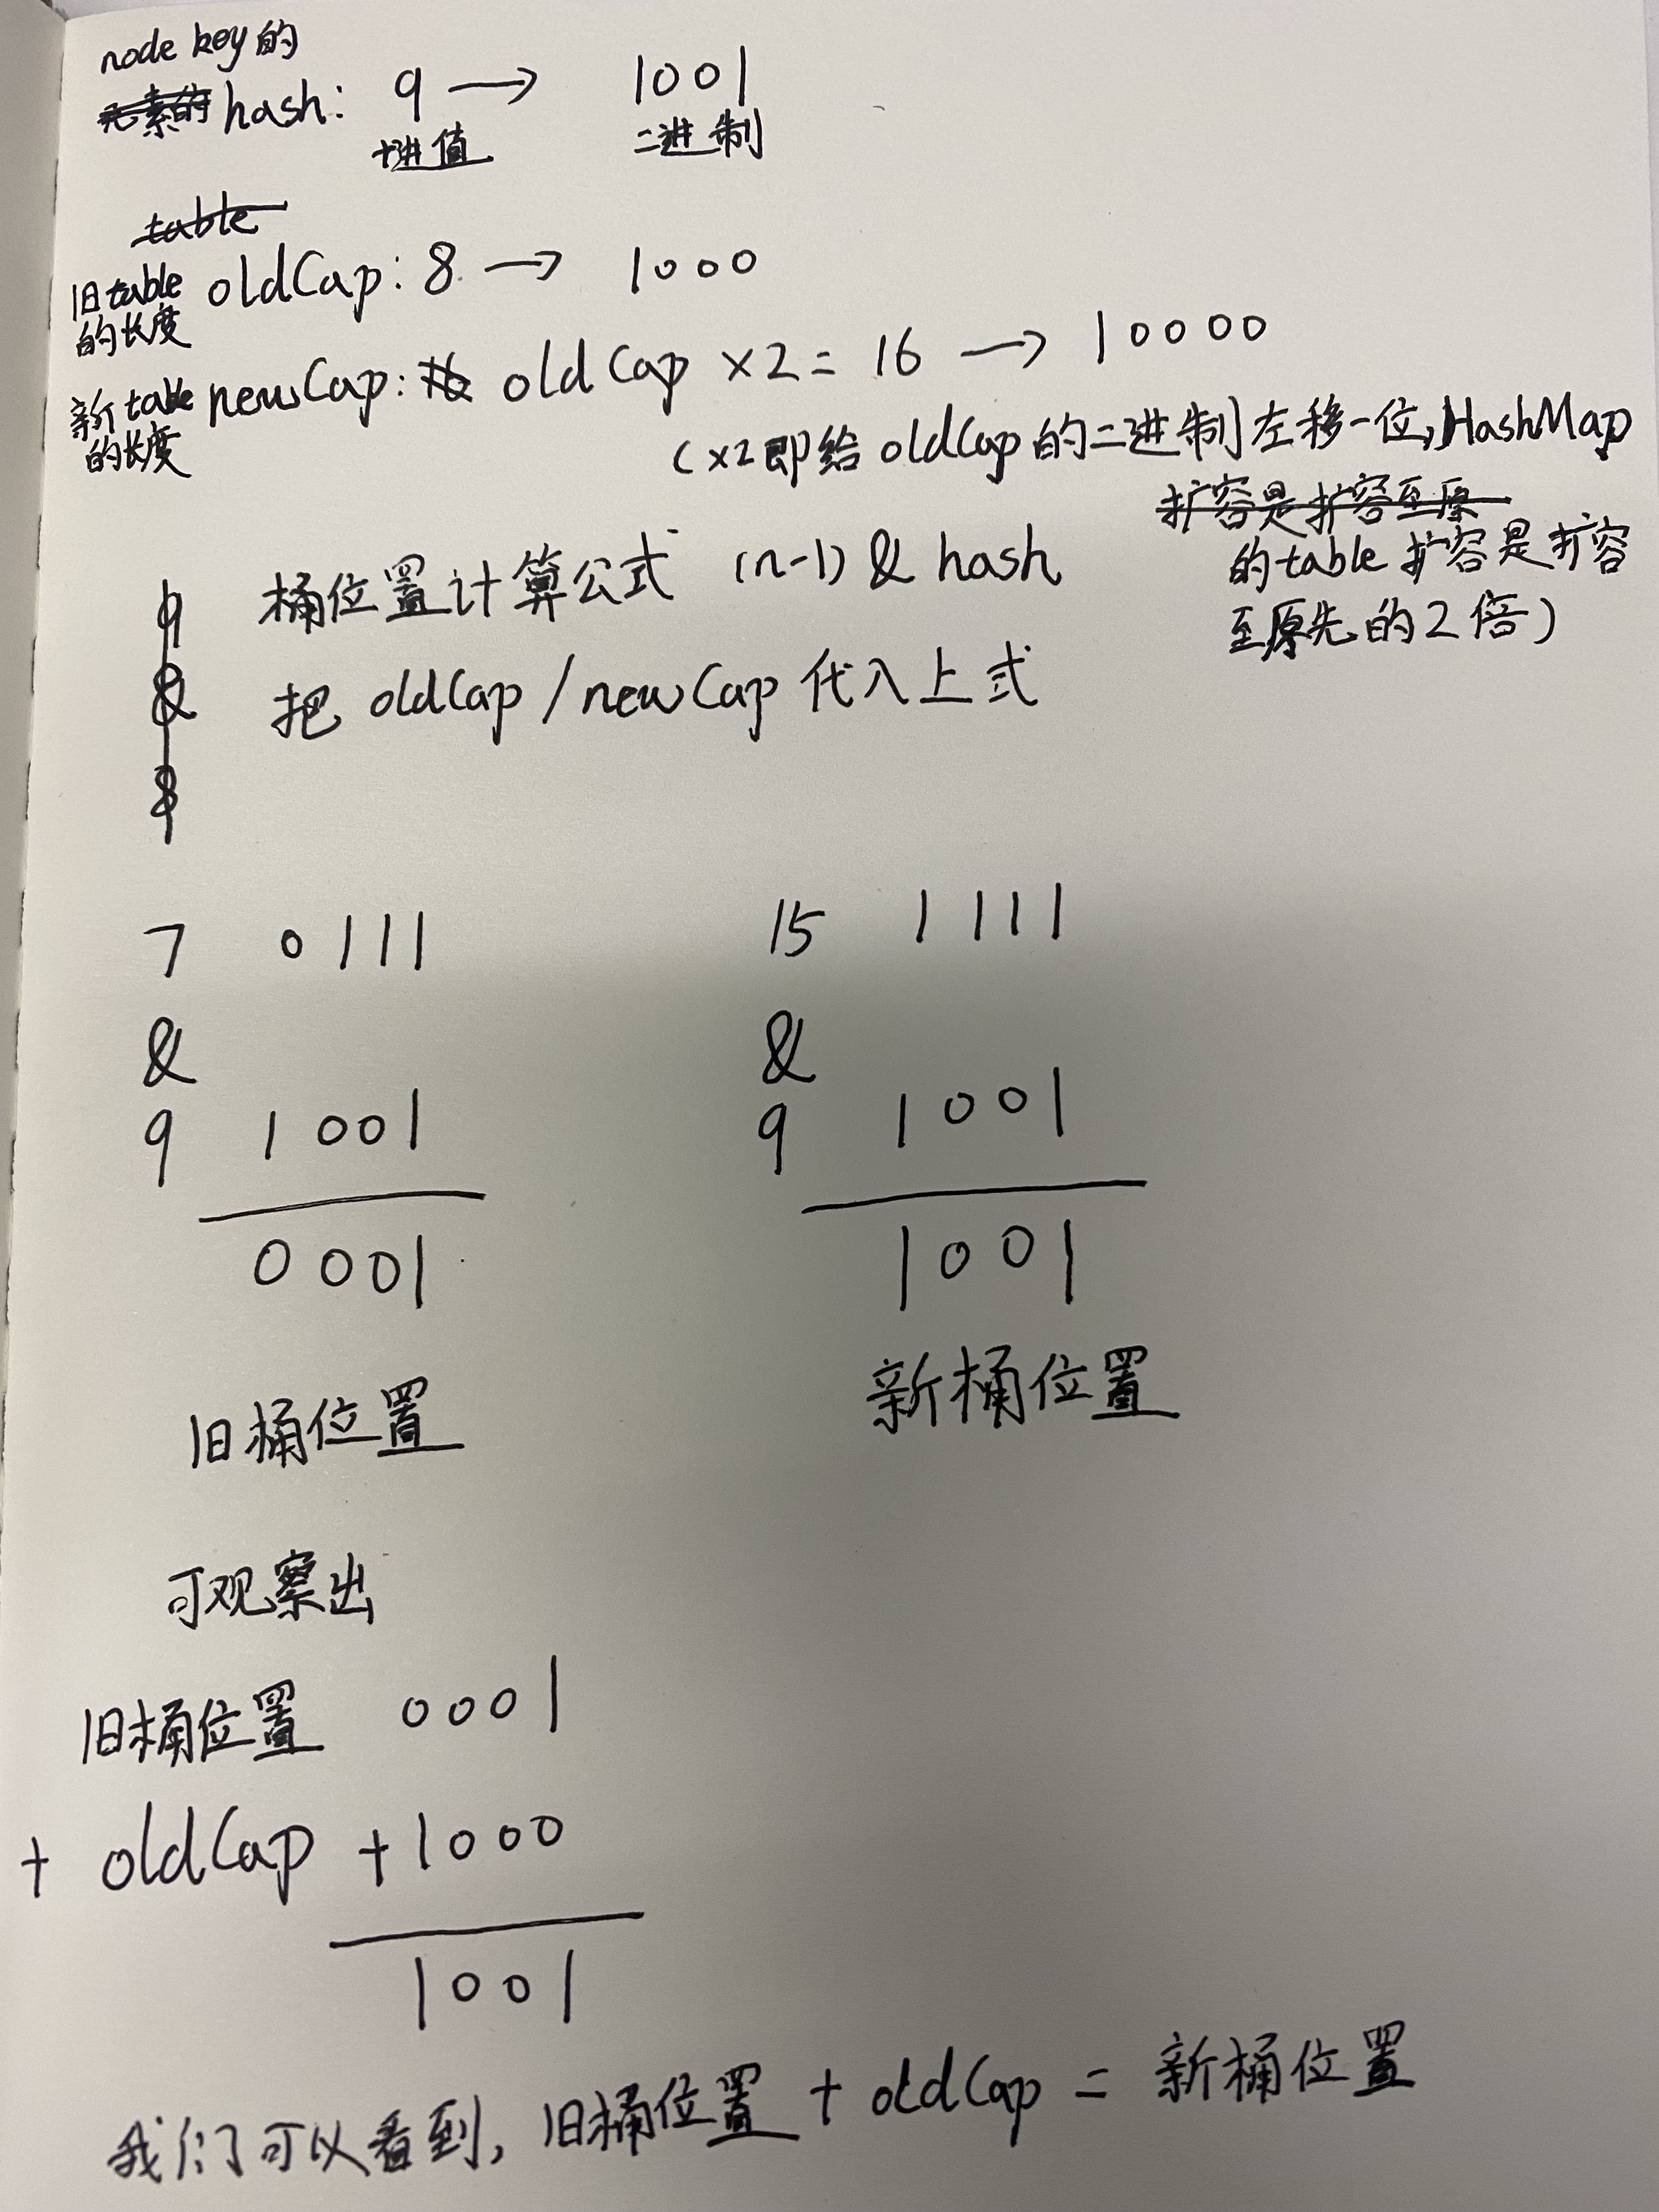 node key的
元素的 hash: 9 → 1001
十进值 二进制
table
旧table的长度 oldCap: 8 → 1000
新table的长度 newCap: 16 oldCap ×2 = 16 → 10000
(×2即给oldCap的二进制左移一位,HashMap
扩容是扩容至原
的table扩容是扩容
至原先的2倍)
9 桶位置计算公式 (n-1) & hash
& 把 oldCap / newCap 代入上式
8
7 0111 15 1111
& &
9 1001 9 1001
0001 1001
旧桶位置 新桶位置
可观察出
旧桶位置 0001
+ oldCap +1000
1001
我们可以看到, 旧桶位置 + oldCap = 新桶位置